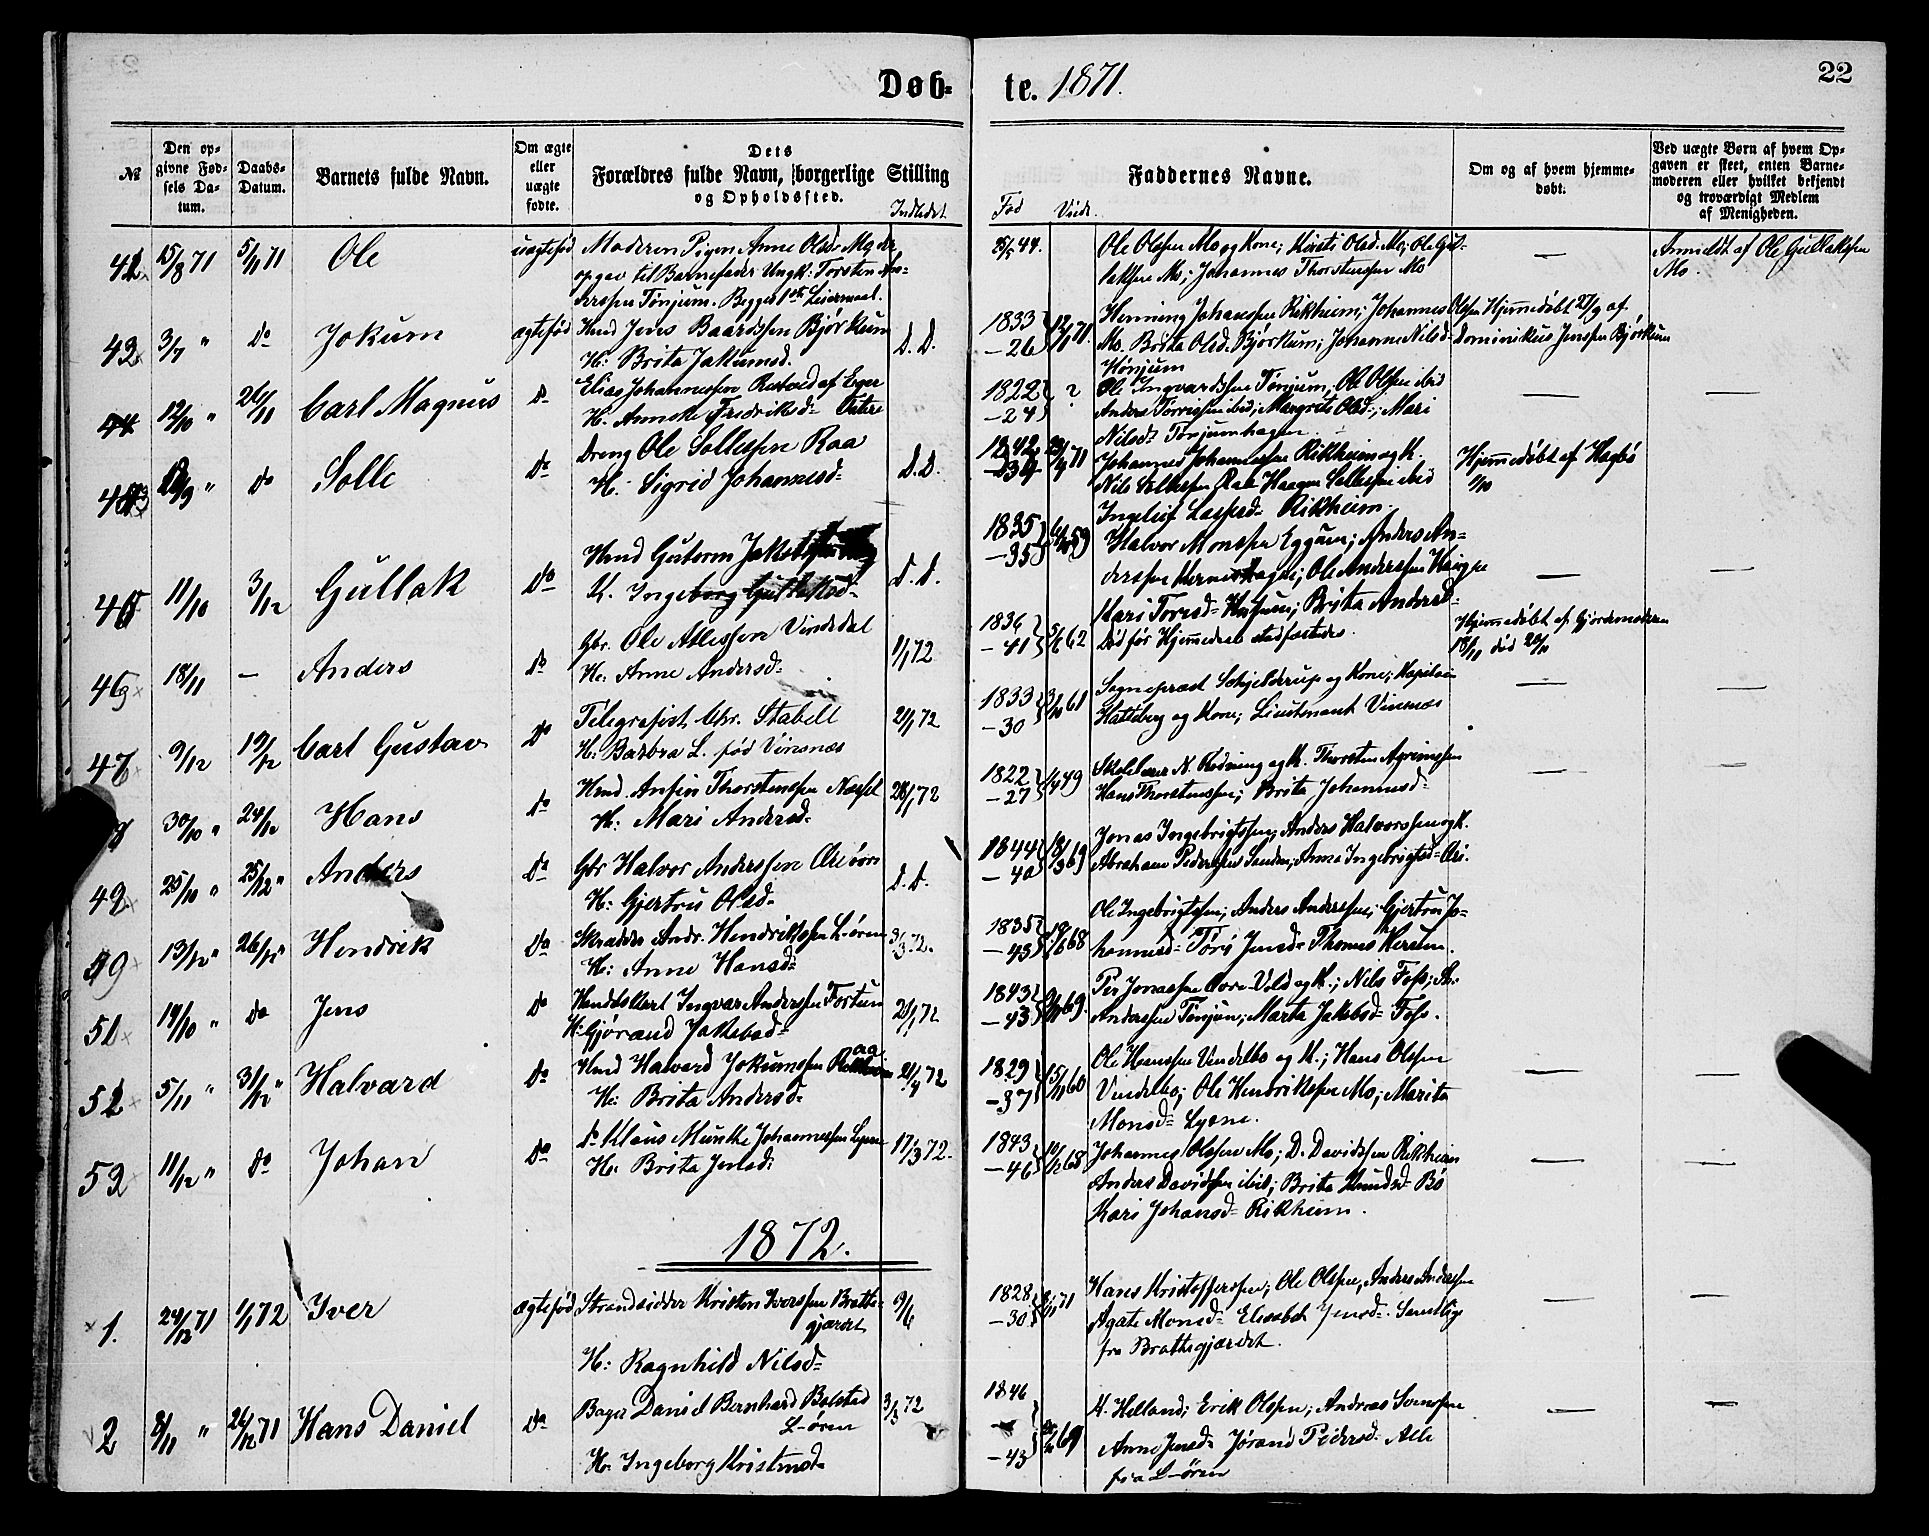 Døb- te. 1871.
22
№
Den opgivne Fødsels Datum.
Daabs-Datum.
Barnets fulde Navn.
Om ægte eller uægte fødte.
Dets
Forældres fulde Navn, borgerlige Stilling
og Opholdssted.
Indledet
Fød
Viede
Faddernes Navne.
Om og af hvem hjemmedøbt.
Ved uægte Børn af hvem Opgaven er skeet, enten Barnemoderen eller hvilket bekjendt og troværdigt Medlem af Menigheden.
15/8 71 5/11 71 Ole uægtefød Moderen Pigen Anne Olsd. Mo der
opgav til Barnefader Ungk: Torsten An-
derssen Tønjum. Begges 1ste Leiermaal.
25/5 44. Ole Olssen Mo og Kone; Kirsti Olsd. Mo; Ole Gul-
laksen Mo; Johannes Thorstenssen Mo
Anmeldt af Ole Gullaksen
Mo.
43 3/7 " do Jokum ægtefød Hmd Jens Baardssen Bjørkum
H: Brita Jakumsd. D.D.
1833 - 26 Henning Johanssen Rikheim; Johannes Olssen
Mo. Brita Olsd. Bjørkum; Johanne Nilsd.
Hønjum
Hjemmedøbt 27/9 af
Dominikus Jenssen Bjørkum
44 12/10 " 26/11 Carl Magnus do Elias Johannessen af Eger
H. Fredriksd.
1822 - 24 ? Ole Ingvardssen Tønjum, Ole Olssen ibid
Anders Torrissen ibid; Margrete Olsd., Mari
Nilsd. Tønjumhagen.
do Solle do Dreng Ole Sollessen Raa
H. Sigrid Johannesd. D.D.
1842 71 Johannes Johannessen Rikheim og K.
Nils Sollessen Raa Haagen Sollessen ibid
Ingeleif Lassesd. Rikheim.
Hjemmedøbt af Hagbø
11/10 3/12 Gullak do Hmd Guttorm
K. Ingeborg Gullaksd. D.D.
1835 - 35 59 Halvor Monssen Eggum; Anders An-
derssen; Ole Anderssen Hauge
Kari Torresd. Husum; Brita Andersd.
46 18/11 — Anders do Gbr. Ole Atlessen Vindedal
H. Anne Andersd. 1/1 72
1836 - 41 5/6 62 Død før Hjemmedaab stadfæstedes.
Hjemmedøbt af Gjordemoderen
18/11 død 20/11
47 9/12 19/12 Carl Gustav do Telegrafist Chr. Stabell
H: Barbra L. fød Vinsnæs 21/1 72
1833 - 30 3/10 61 Sogneprest Schjelderup og Kone; Kapitain
Hatleberg og Kone; Lieutenant Vinsnæs
30/10 " 24/12 Hans do Hmd. Anfin Thorstenssen Næssel
H: Mari Andersd. 28/1 72
1822 - 27 49 Skolelærer N. Rødning og K. Thorsten Agrimssen
Hans Thorstenssen; Brita Johannesd.
49 25/10 " 25/12 " Anders do Gbr Halvor Anderssen Ereøren
H: Gjertru Olsd. D.D.
1844 - 40 18/3 69 Jonas Ingebrigtssen; Anders Halvorssen og K.
Abraham Pederssen Sanden; Anna Ingebrigtsd.
13/12 " 26/12 " Hendrik do Skrædder Andr. Hendrikssen L-øren
H: Anne Hansd. 3/3 72.
1835 - 43 68 Ole Ingebrigtssen; Anders Anderssen; Gjertru Jo-
hannesd. Tøri Jensd. Thomas Hersum.
51 14/10 " do Jens do Handelskarl Ingvar Anderssen Fortun
H: Gjørand Jakobsd. 21/1 72
1843 - 43 69. Per Jonassen Øvre-Vold og K.; Nils Foss;
Anderssen Tønjum; Marta Jakobsd. Foss.
52 5/11 " 31/12 " Halvard do Hmd Halvard Jokumssen Raa
H: Brita Andersd. 21/4 72
1829 - 37 15/11 60 Ole Hanssen Vindelbo og K.; Hans Olssen
Vindelbo; Ole Hendrikssen Mo; Marita
Monsd. Lysne.
53 11/12 " do Johan do do Klaus Munthe Johannessen Lysne
H: Brita Jensd. 17/3 72.
1843 - 46 68 Johannes Olssen Mo; D. Davidssen Rikheim
Anders Davidssen ibid; Brita Knudsd. Bø
Kari Johansd. Rikheim.
1872.
1. 24/12 71 1/1 72 Iver ægtefød Strandsidder Kristen Iverssen Bratte-
gjærdet
H: Ragnhild Nilsd. 9/6
1828 - 30 71 Hans Kristofferssen; Ole Olssen, Anders Anderssen
Agate Monsd. Elisabet Jensd. Samtlige
fra Brattegjærdet.
2 8/11 " 26/12 71 Hans Daniel do Bager Daniel Bernhard Bolstad
L-øren
H. Ingeborg Kristensd. 3/3 72
1846 - 43 69 H. Helland; Erik Olssen; Andreas Svenssen
Anne Jensd. Jørand Pedersd. Alle
fra L-øren